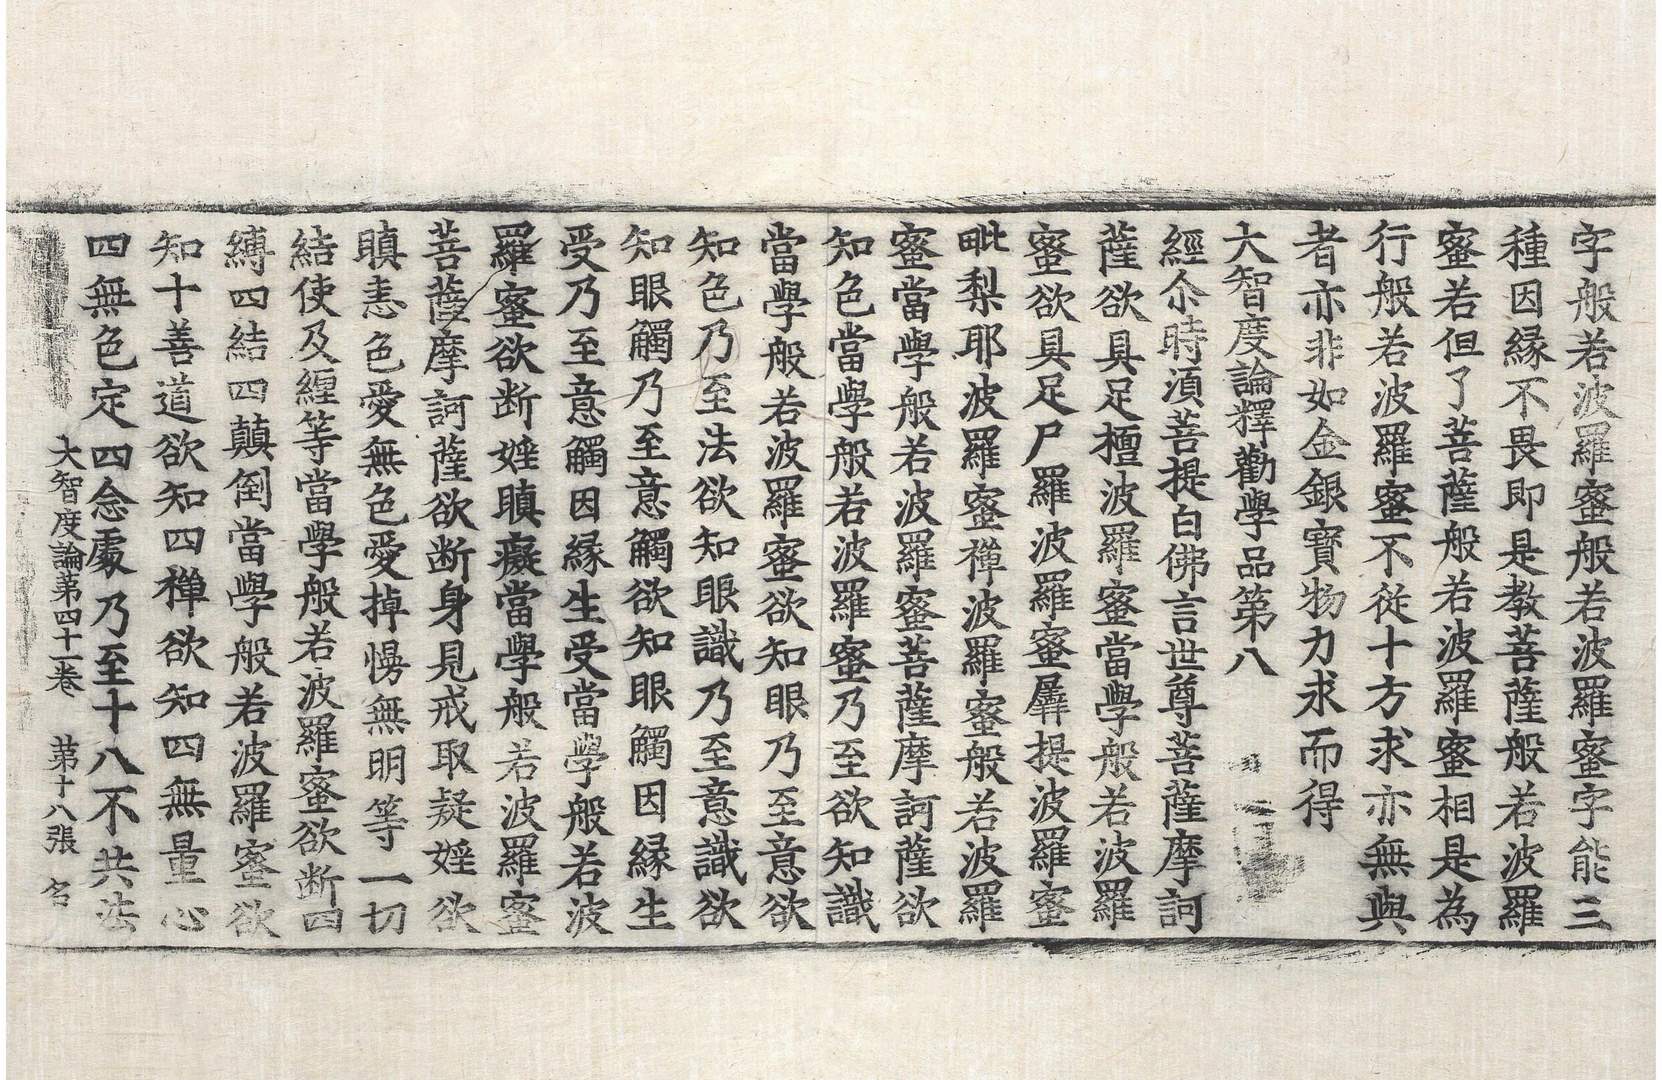 字般若波羅蜜般若波羅蜜字能三
種因緣不畏即是教菩薩般若波羅
蜜若但了菩薩般若波羅蜜相是為
行般若波羅蜜不從十方求亦無與
者亦非如金銀寶物力求而得
大智度論釋勸學品第八
經尒時湏菩提白佛言世尊菩薩摩訶
薩欲具足檀波羅蜜當學般若波羅
蜜欲具足尸羅波羅蜜羼提波羅蜜
毗梨耶波羅蜜禪波羅蜜般若波羅
蜜當學般若波羅蜜菩薩摩訶薩欲
知色當學般若波羅蜜乃至欲知識
當學般若波羅蜜欲知眼乃至意欲
知色乃至法欲知眼識乃至意識欲
知眼觸乃至意觸欲知眼觸因緣生
受乃至意觸因緣生受當學般若波
羅蜜欲断婬瞋癡當學般若波羅蜜
菩薩摩訶薩欲断身見戒取疑婬欲
瞋恚色愛無色愛掉慢無明等一切
結使及纏等當學般若波羅蜜欲断四
縛四結四顛倒當學般若波羅蜜欲
知十善道欲知四禪欲知四無量心
四無色定四念處乃至十八不共法
大智度論第四十一卷 第十八張 名